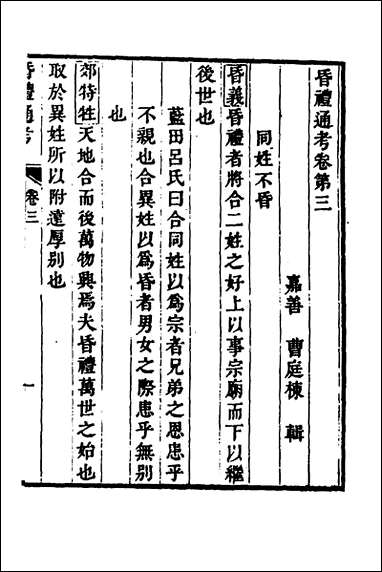 昏禮通考卷第三
嘉善 曹庭棟 輯
同姓不昏
昏義昏禮者將合二姓之好上以事宗廟而下以繼
後世也
藍田呂氏曰合同姓以爲宗者兄弟之恩患乎
不親也合異姓以爲昏者男女之際患乎無別
也
郊特牲天地合而後萬物興焉夫昏禮萬世之始也
取於異姓所以附遠厚別也
昏禮通考 卷三 一